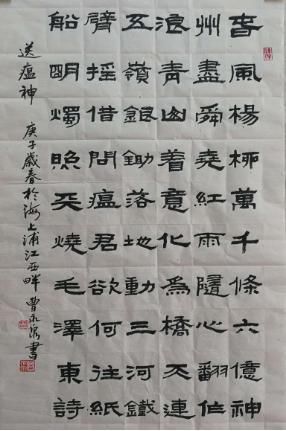 春風楊柳萬千條六億神
州盡舜堯紅雨隨心翻作
浪青山着意化為橋天連
五嶺銀鋤落地動三河鐵
臂摇借問瘟君欲何往紙
船明燭照天燒毛澤東詩
送瘟神 庚子歲春於海上浦江西畔 曹永書